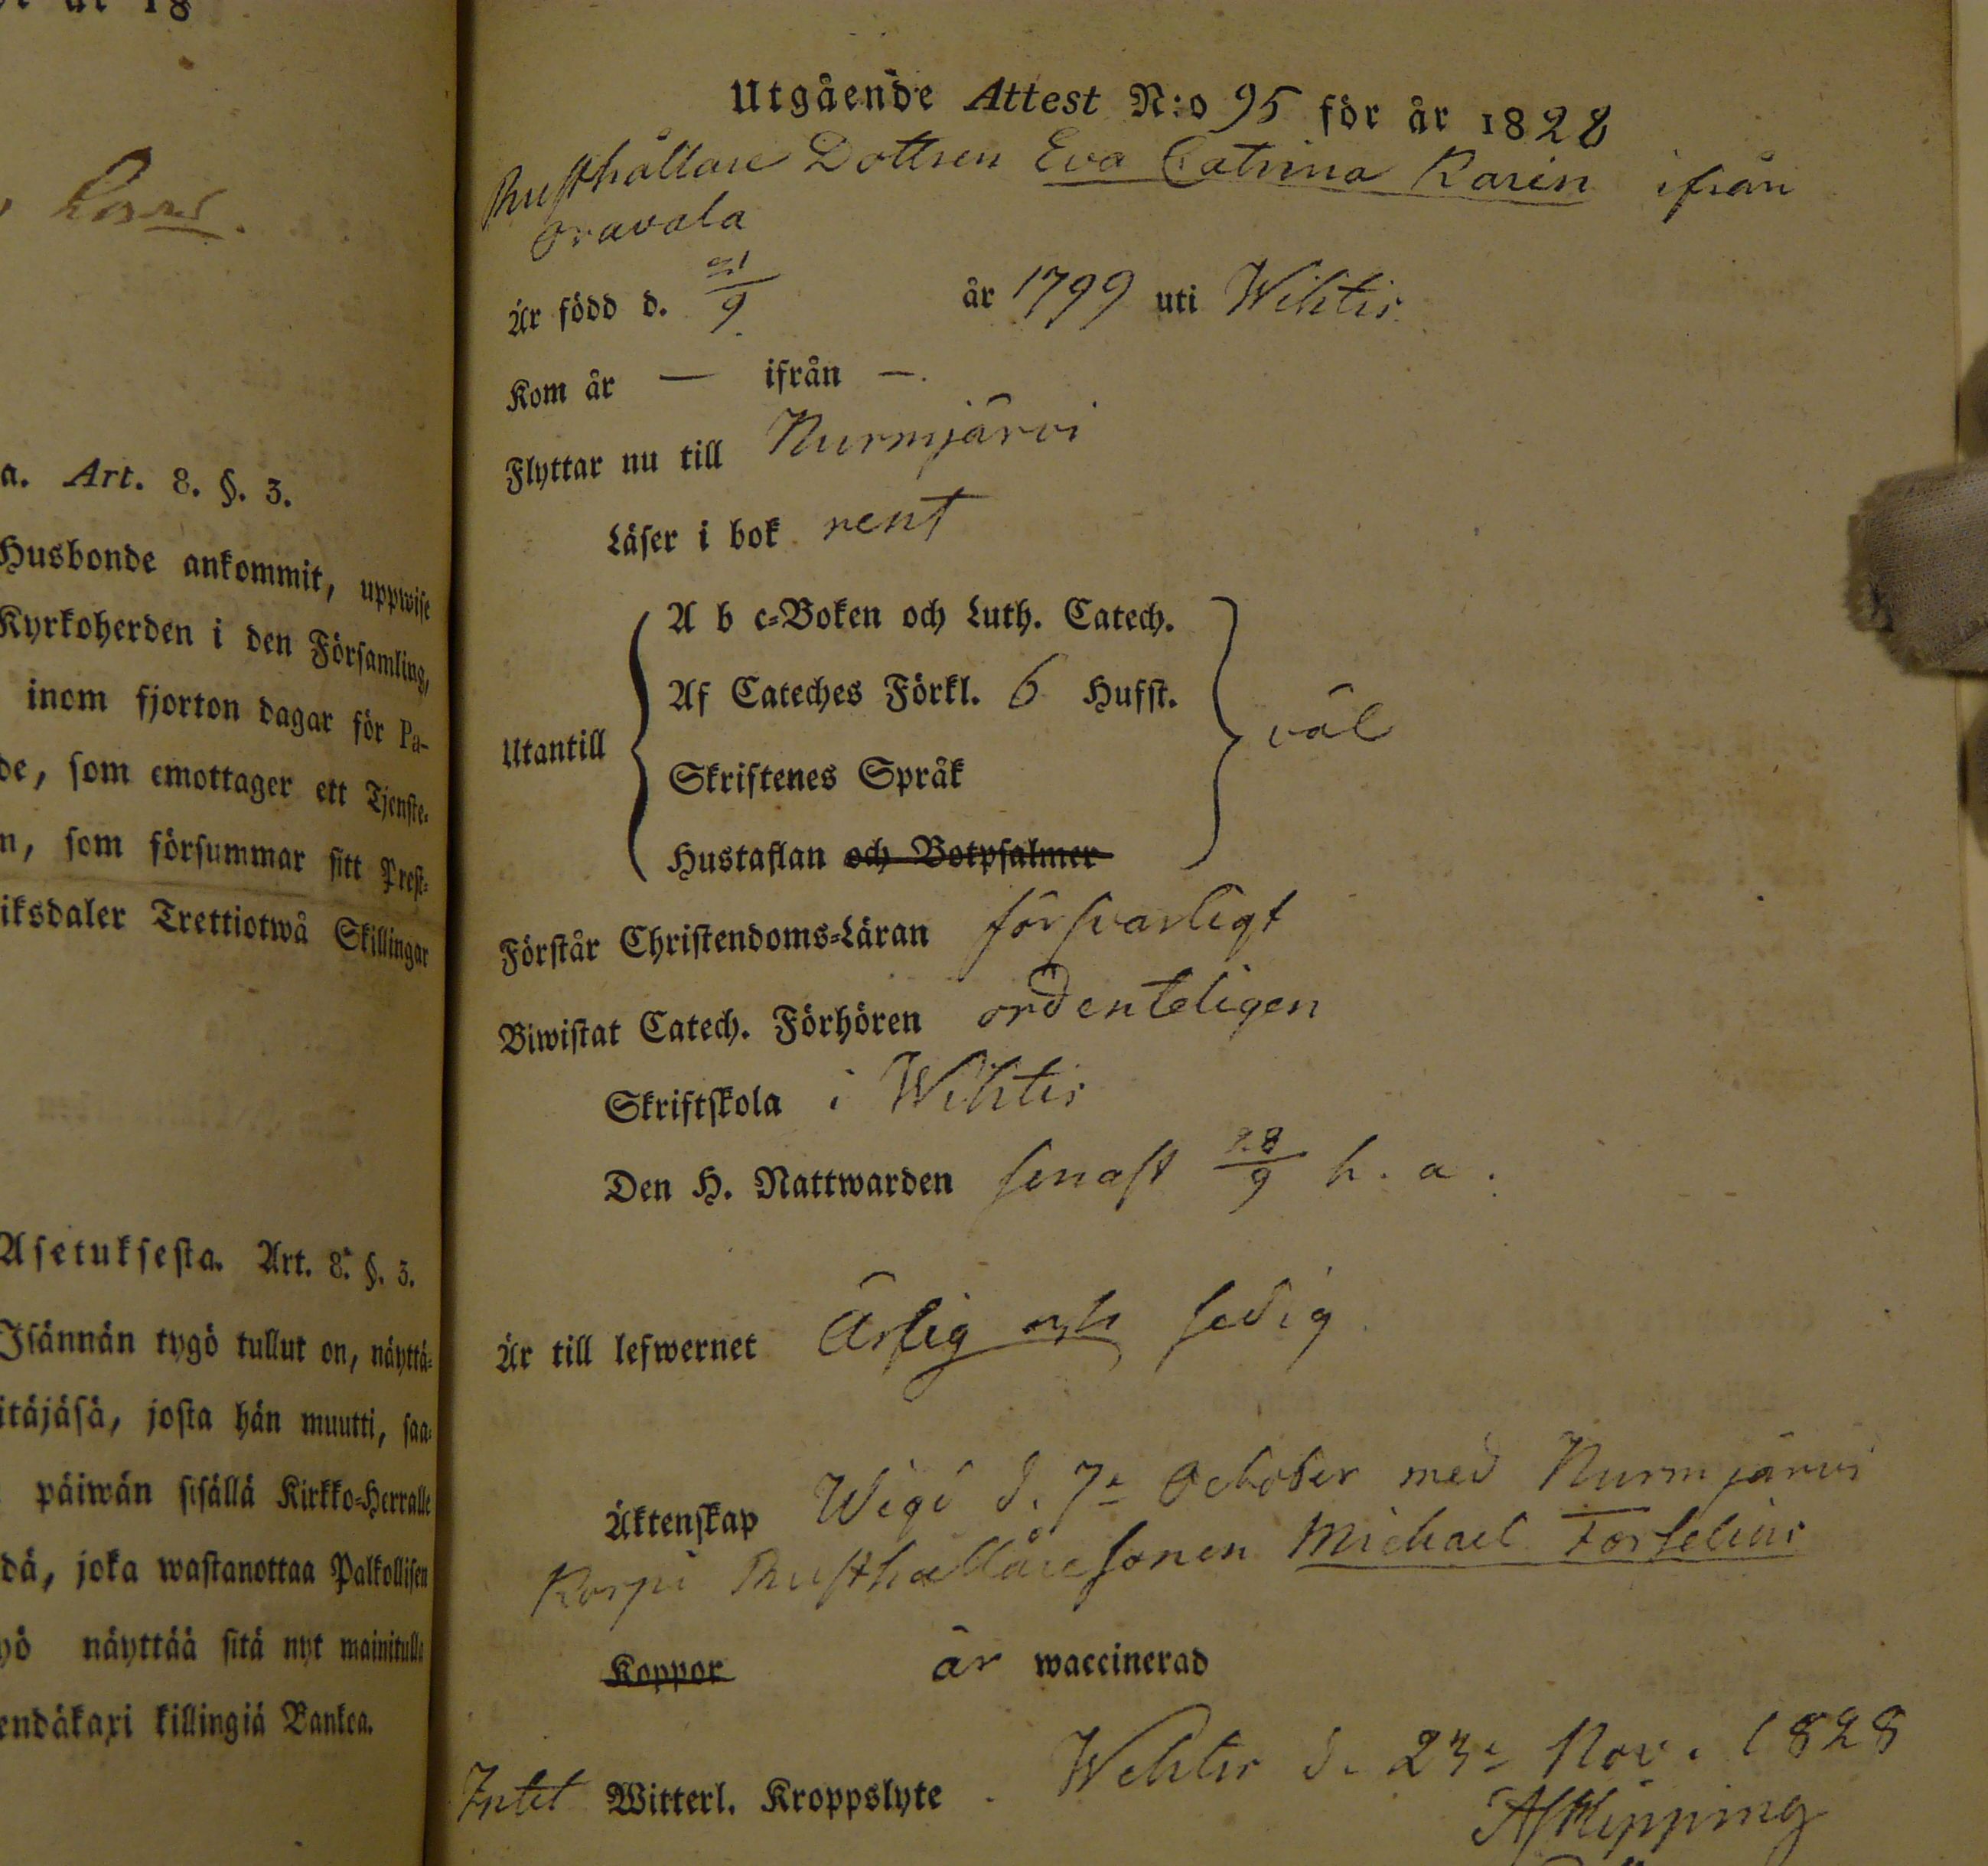 18
a. Art. 8. §. 3.
Husbonde ankommit, uppwise
Kyrkoherden i den Församling,
inom fjorton dagar för Pa-
de, som emottager ett Tjenste-
n, som försummar sitt Prest-
iksdaler Trettiotwå Skillingar
Asetuksesta. Art. 8. §. 3.
Isännän tygö tullut on, näyttä-
itäjäsä, josta hän muutti, saa-
päiwän sisällä Kirkko-Herralle
dä, joka wastanottaa Palkollisen
yö näyttää sitä nyt mainitulle
endäkaxi killingiä Bankea.
Utgående Attest N:o 95 för år 1828
Rusthållare Dottren Eva Catrina Karin ifrån
Oravala
Är född d. /9 år 1799 uti Wihtis
Kom år — ifrån —.
Flyttar nu till Nurmjärvi
Läser i bok rent
A b c-Boken och Luth. Catech.
Af Cateches Förkl. 6 Hufst.
Utantill väl
Skriftenes Språk
Hustaflan och Botpsalmer
Förstår Christendoms-Läran försvarligt
Biwistat Catech. Förhören ordenteligen
Skriftskola i Wihtis
Den H. Nattwarden senast 28/9 h. a.
Är till lefwernet Ärlig och sedig
Äktenskap Wigd d. 7e October med Nurmjärvi
Korpi Rusthållaresonen Michael Forselius
Koppor är waccinerad
Intet Witterl. Kroppslyte. Wihtis d. 23e Nov. 1828